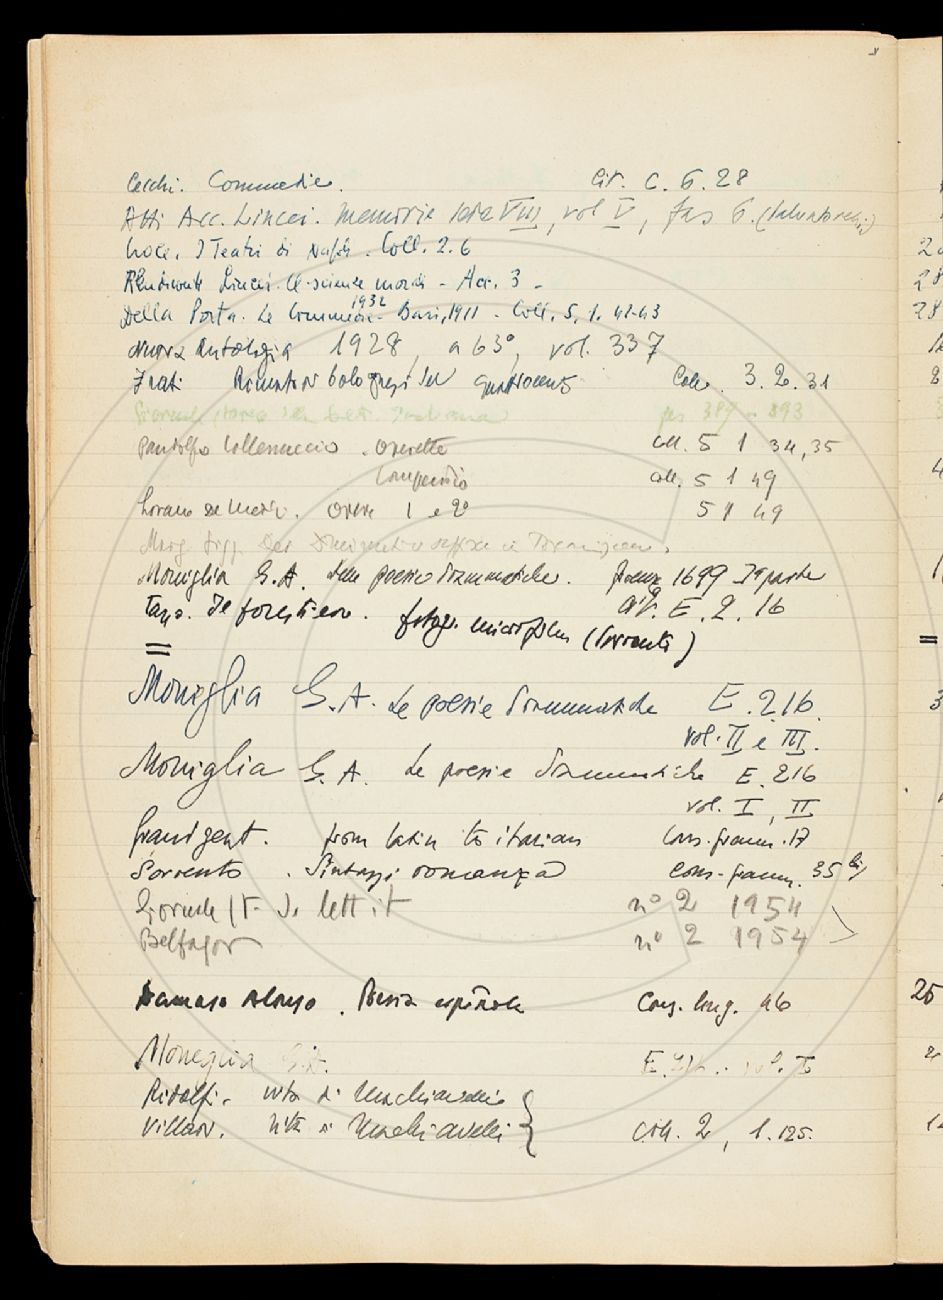 Cecchi. Commedie. Cit. C. 6. 28
Atti Acc. Lincei. Memorie serie VIII, vol V, fas 6.
Croce. I Teatri di Napoli. Coll. 2. 6
Rendiconti Lincei. Cl. scienze morali - Acc. 3 -
Della Porta. Le Commedie - Bari, 1911 - Coll. 5. 1. 42-43
1932
Nuova Antologia 1928, a 63°, vol. 337
Frati Rimatori bolognesi del quattrocento Coll. 3. 2. 31
Giornale storico della lett. Italiana fas 389
Pandolfo Collenuccio. Operette coll. 5 1 34, 35
Compendio coll. 5 1 49
Lorenzo de Medici. Opere 1 e 2° 5 1 49
Moniglia G. A. Delle poesie Drammatiche. Firenze 1699 Iª parte
Tasso. Il forestiero. Cit. E. 2. 16
fotogr. microfilm (Sorrento)
=
Moniglia G. A. Le poesie Drammatiche E. 216.
vol. II e III.
Moniglia G. A. Le poesie Drammatiche E. 216
vol. I, II
Grandgent. from latin to italian Cons. gramm. 17
Sorrento. Sintassi romanza Cons. gramm. 35 bis
Giornale St. di lett it n° 2 1954
Belfagor n° 2 1954
Damaso Alonso. Poesia española Cons. ling. 46
Moneglia G.A. E. 216. vol. I
Ridolfi. vita di Machiavelli
Villari. Vita di Machiavelli coll. 2, 1. 125.